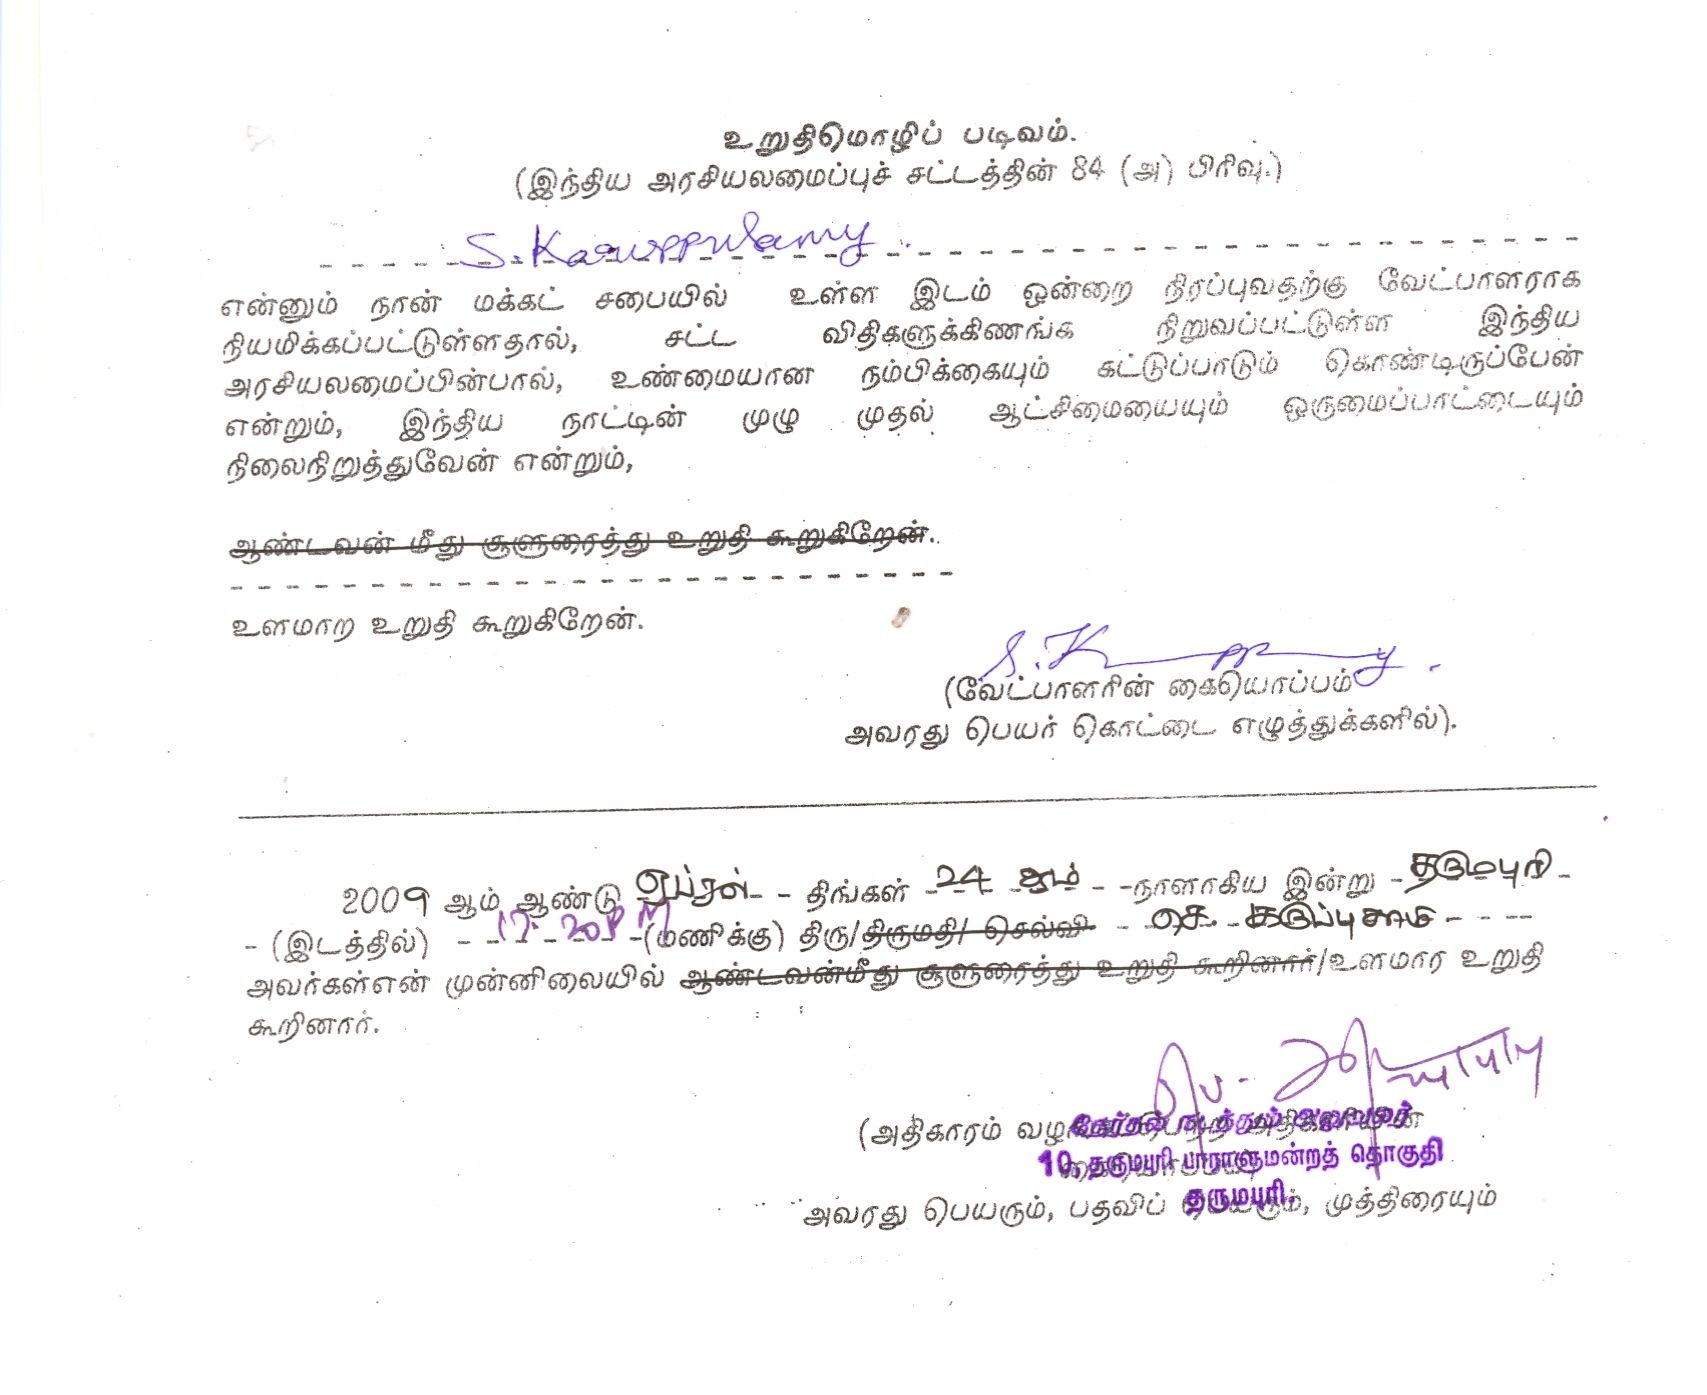 உறுதிமொழிப் படிவம்.
(இந்திய அரசியலமைப்புச் சட்டத்தின் 84 (அ) பிரிவு.)
S. Karuppusamy
என்னும் நான் மக்கட் சபையில் உள்ள இடம் ஒன்றை நிரப்புவதற்கு வேட்பாளராக
நியமிக்கப்பட்டுள்ளதால், சட்ட விதிகளுக்கிணங்க நிறுவப்பட்டுள்ள இந்திய
அரசியலமைப்பின்பால், உண்மையான நம்பிக்கையும் கட்டுப்பாடும் கொண்டிருப்பேன்
என்றும், இந்திய நாட்டின் முழு முதல் ஆட்சிமையையும் ஒருமைப்பாட்டையும்
நிலைநிறுத்துவேன் என்றும்,
ஆண்டவன் மீது சூளுரைத்து உறுதி கூறுகிறேன்.
உளமாற உறுதி கூறுகிறேன்.
(வேட்பாளரின் கையொப்பம்
அவரது பெயர் கொட்டை எழுத்துக்களில்).
2009 ஆம் ஆண்டு ஏப்ரல் திங்கள் 24 ஆம் நாளாகிய இன்று தருமபுரி
(இடத்தில்) 12.20 PM (மணிக்கு) திரு/திருமதி/ செல்வி செ. கருப்புசாமி
அவர்கள்என் முன்னிலையில் ஆண்டவன்மீது சூளுரைத்து உறுதி கூறினார்/உளமார உறுதி
கூறினார்.
(அதிகாரம் அதிகாரியின்
தேர்தல் நடத்தும் அலுவலர்
10, தருமபுரி பாராளுமன்றத் தொகுதி
தருமபுரி.
அவரது பெயரும், பதவிப் பெயரும், முத்திரையும்